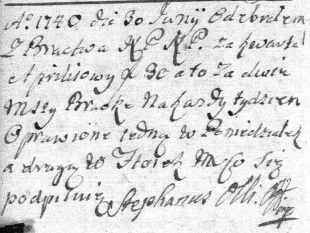 Aō 1740 die 30 Junij Odebrałem
Z Bractwa N. P. N. P. za kwartał
Aprilisowy f 30 a to za dwie
Mszy Brackie Na kazdy tydzien
Oprawione iedną w Poniedziałek
a drugą w Wtorek Na Co Się
podpisuię Stephanus Olli